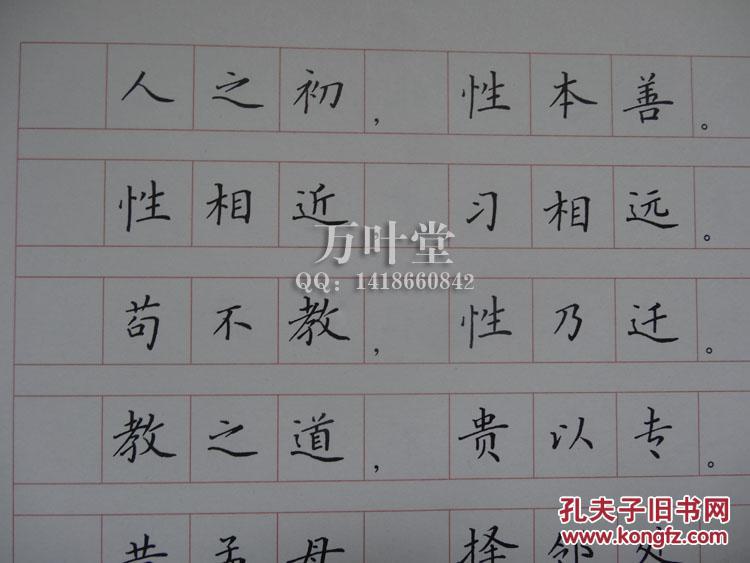 人之初，性本善。
性相近 习相远。
万叶堂
QQ：1418660842
苟不教，性乃迁。
教之道，贵以专。
昔孟母 择邻处
孔夫子旧书网
www.kongfz.com